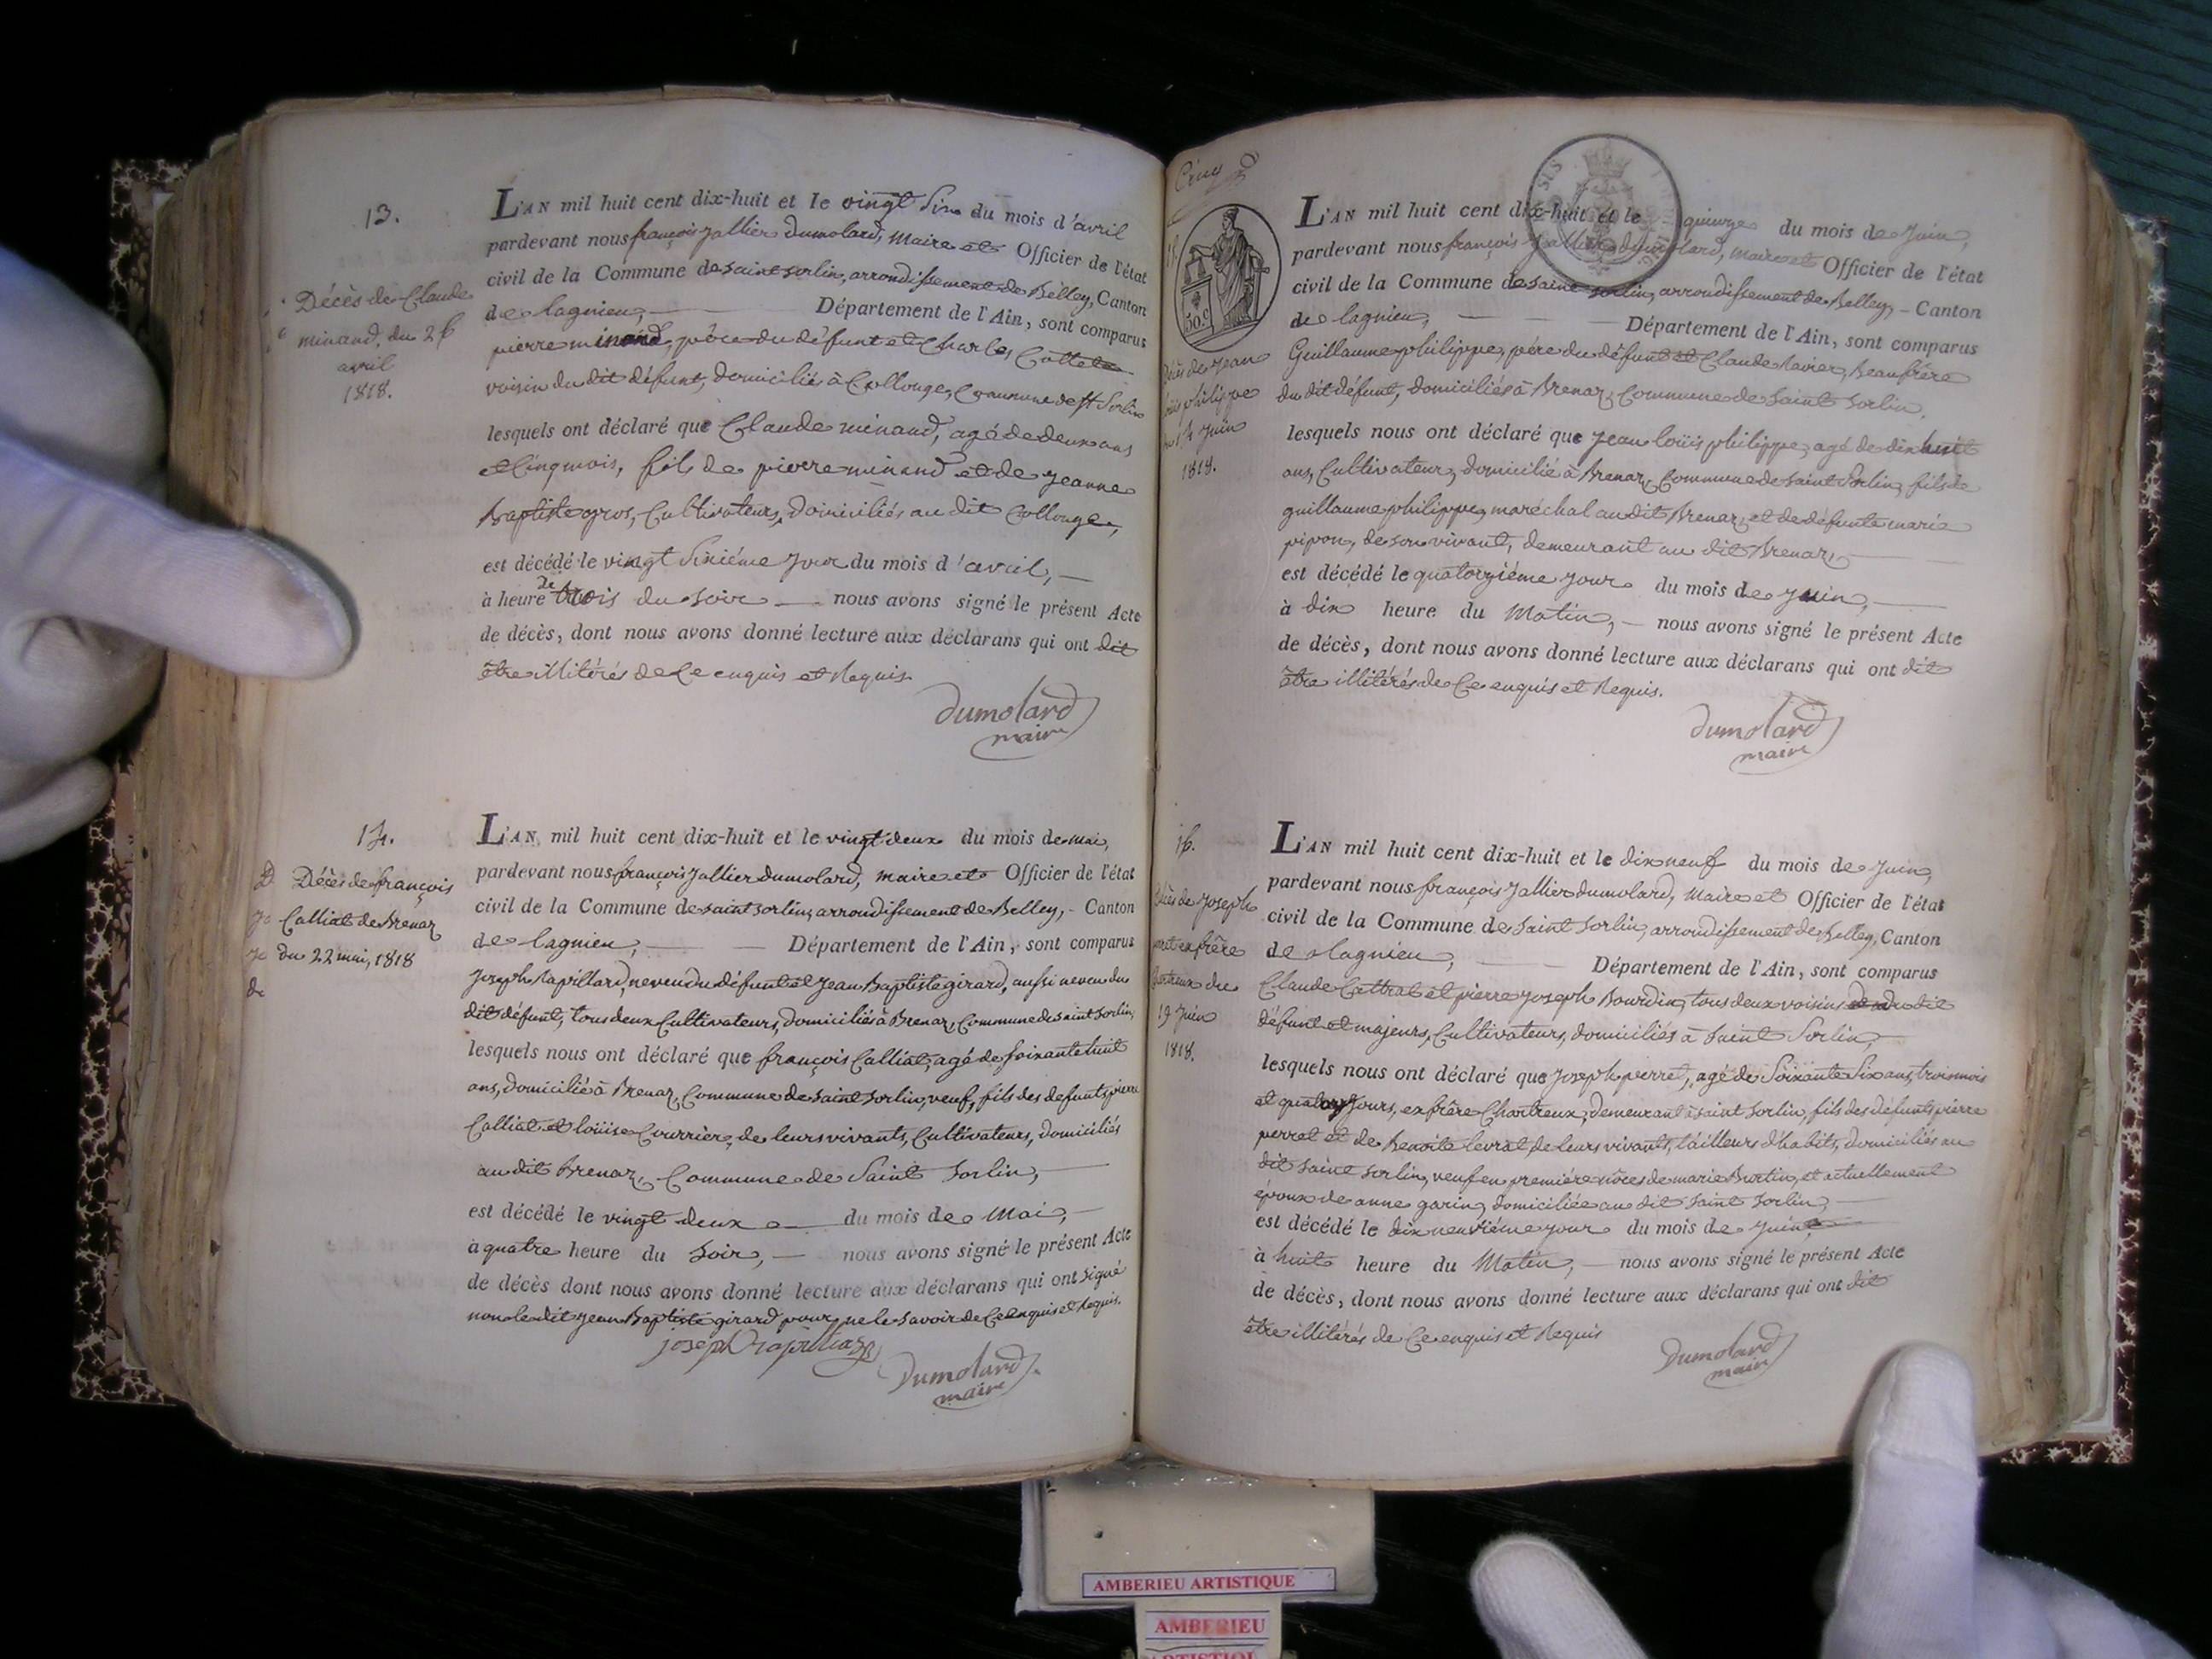 13.
Décès de Claude
minand, du 26
avril
1818.
L'AN mil huit cent dix-huit et le vingt Six du mois d'avril
pardevant nous françois Jallier Dumolard, Maire et Officier de l'état
civil de la Commune de saint sorlin, arrondissement de Belley, Canton
de lagnieu, Département de l'Ain, sont comparus
pierre minand, père du défunt et Charles
voisin du dit défunt, domiciliés à Collonge, Commune de St Sorlin
lesquels ont déclaré que Claude minand, agé de deux ans
et Cinq mois, fils de pierre minand et de jeanne
Baptiste gros, Cultivateurs, domiciliés au dit Collonge,
est décédé le vingt Sixiéme jour du mois d'avril,
à heure de trois du soir nous avons signé le présent Acte
de décès, dont nous avons donné lecture aux déclarans qui ont dit
être illitérés de Ce enquis et Requis.
Dumolard
maire
14.
Décès de françois
Calliat de Brenaz
du 22 mai, 1818
L'AN mil huit cent dix-huit et le vingt deux du mois de mai,
pardevant nous françois Jallier Dumolard, maire et Officier de l'état
civil de la Commune de saint sorlin, arrondissement de Belley, - Canton
de lagnieu, Département de l'Ain, sont comparus
Joseph Rapillard, neveu du défunt et Jean Baptiste girard, aussi neveu du
dit défunt, tous deux Cultivateurs, domiciliés à Brenaz, Commune de saint sorlin,
lesquels nous ont déclaré que françois Calliat, agé de soixante huit
ans, domicilié à Brenaz, Commune de saint sorlin, veuf, fils des defunts pierre
Calliat et loüise Courrier, de leurs vivants, Cultivateurs, domiciliés
au dit Brenaz, Commune de Saint Sorlin,
est décédé le vingt deux du mois de Mai,
à quatre heure du Soir, nous avons signé le présent Acte
de décès dont nous avons donné lecture aux déclarans qui ont signé
non le dit jean Baptiste girard pour ne le savoir de Ce enquis et Requis.
joseph rapilliard
Dumolard
maire
50.c
Décès de Jean
loüis philippe
du 14 Juin
1818.
L'AN mil huit cent dix-huit et le quinze du mois de Juin,
pardevant nous françois Jallier Dumolard, maire et Officier de l'état
civil de la Commune de saint sorlin, arrondissement de Belley, - Canton
de lagnieu, Département de l'Ain, sont comparus
Guillaume philippe, père du défunt et Claude Ravier, Beaufrère
du dit défunt, domiciliés à Brenaz, Commune de Saint Sorlin,
lesquels nous ont déclaré que Jean loüis philippe, agé de dix huit
ans, Cultivateur, domicilié à Brenaz, Commune de saint Sorlin, fils de
guillaume philippe, maréchal au dit Brenaz, et de défunte marie
pipon, de son vivant, demeurant au dit Brenaz,
est décédé le quatorziéme jour du mois de Juin,
à dix heure du Matin, nous avons signé le présent Acte
de décès, dont nous avons donné lecture aux déclarans qui ont dit
être illitérés de Ce enquis et Requis.
Dumolard
maire
16.
Décès de Joseph
perret ex frère
Chartreux du
19 Juin
1818.
L'AN mil huit cent dix-huit et le dix neuf du mois de Juin,
pardevant nous françois Jallier Dumolard, Maire et Officier de l'état
civil de la Commune de Saint Sorlin, arrondissement de Belley, Canton
de Lagnieu, Département de l'Ain, sont comparus
Claude Cattrat et pierre joseph Bourdin, tous deux voisins du dit
défunt et majeurs, Cultivateurs, domiciliés à Saint Sorlin,
lesquels nous ont déclaré que Joseph perret, agé de Soixante Six ans, trois mois
et quatorze jours, ex frère Chartreux, demeurant à saint sorlin, fils des défunts pierre
perret et de Benoite levrat, de leurs vivants, tailleurs d'habits, domiciliés au
dit saint sorlin, veuf en premiére nôces de marie Burtin, et actuellement
époux de anne garin, domiciliée au dit Saint Sorlin,
est décédé le dix neuviéme jour du mois de Juin
à huit heure du Matin, nous avons signé le présent Acte
de décès, dont nous avons donné lecture aux déclarans qui ont dit
être illitérés de Ce enquis et Requis
Dumolard
maire
AMBERIEU ARTISTIQUE
AMBERIEU
ARTISTIQUE